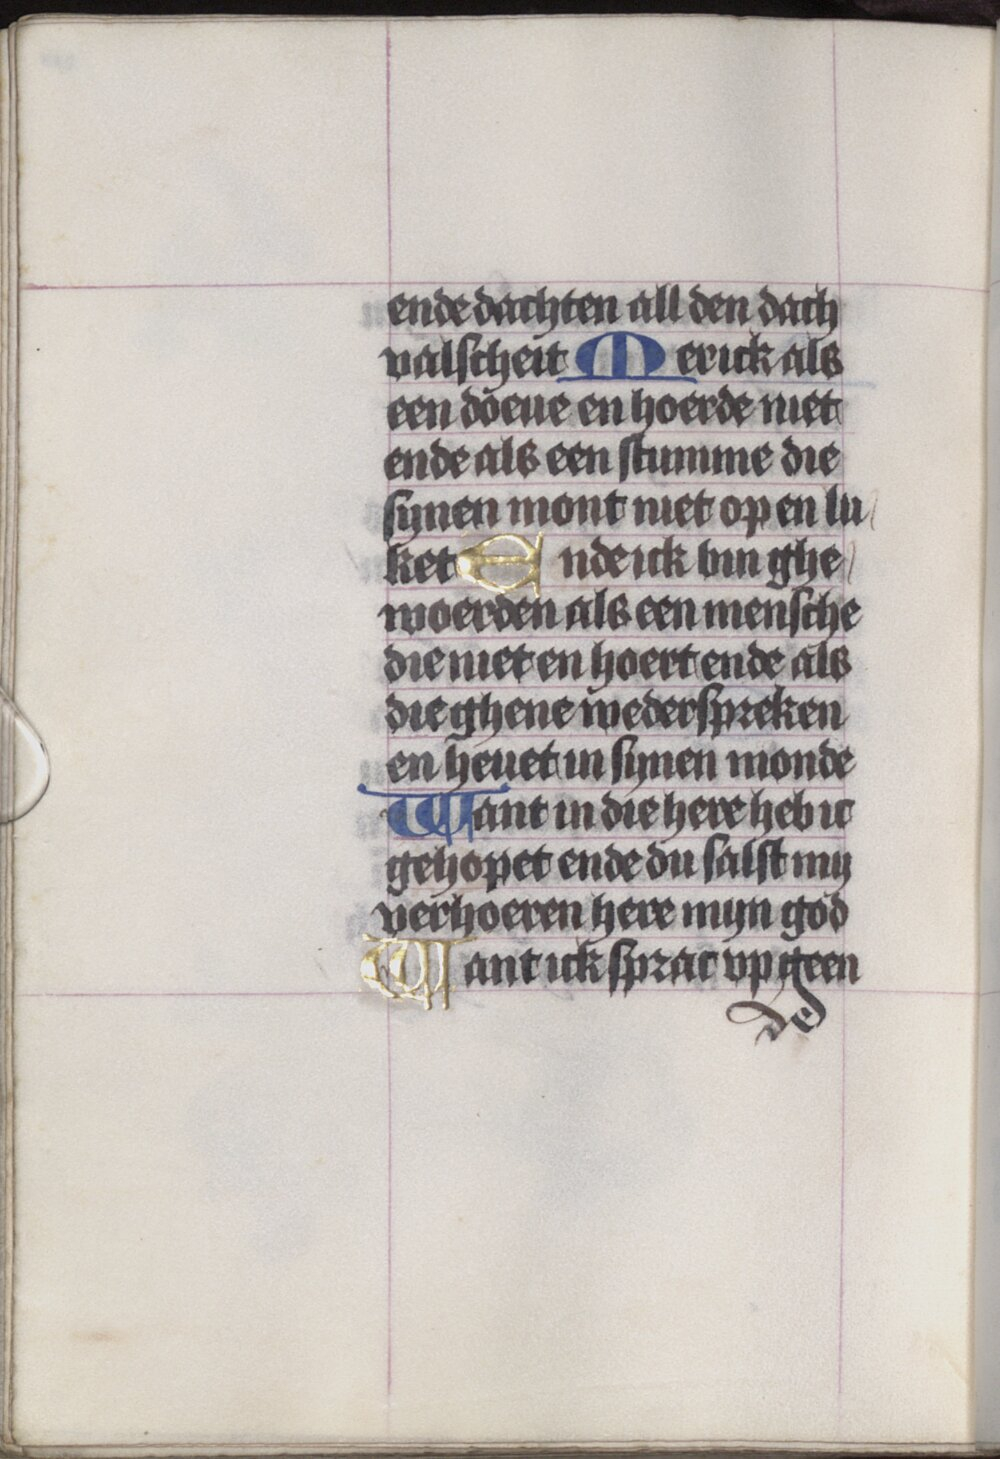 ende dachten all den dach
valscheit Mer ick als
een döeue en hoerde niet
ende als een stumme die
sijnen mont niet op en lu
ket Ende ick bin ghe
woerden als een mensche
die niet en hoert ende als
die ghene wederspreken
en heuet in sijnen monde
Want in die here heb ic
gehopet ende du salst mij
verhoeren here mijn god
Want ick sprac vp geen